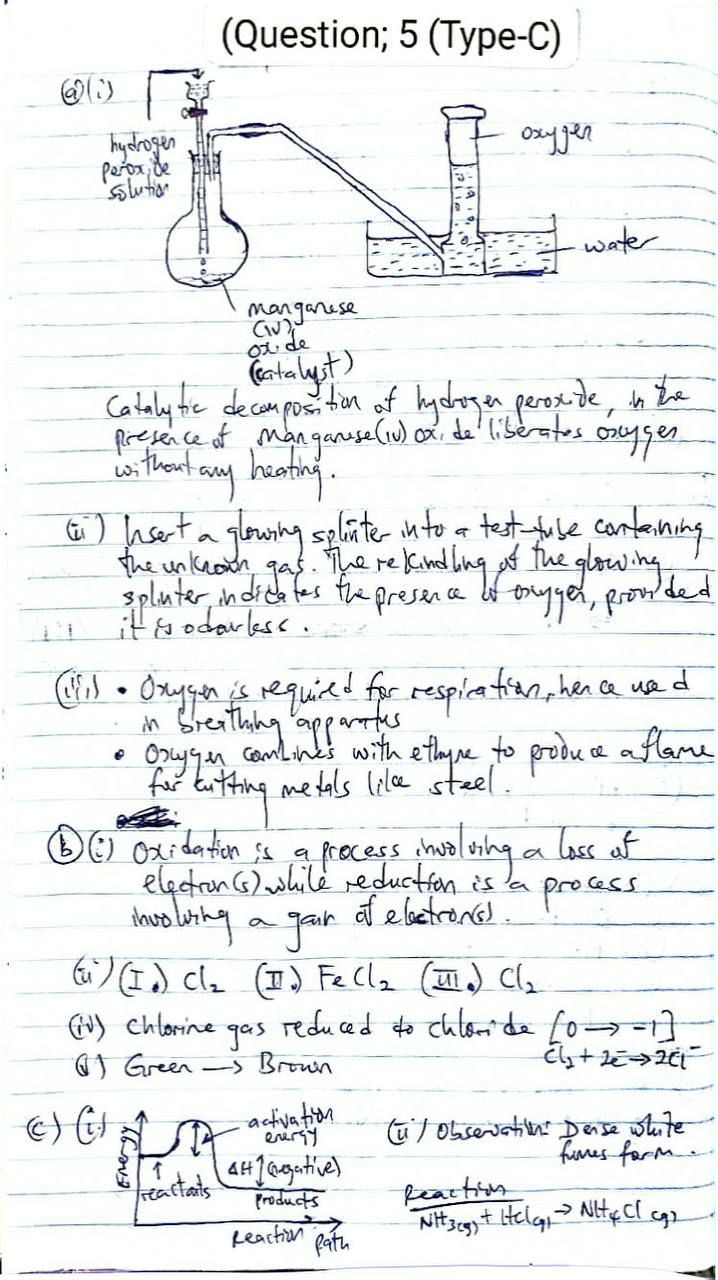 (Question; 5 (Type-C)
(a)(i)
hydrogen
peroxide
solution
oxygen
water
manganese
(iv)
oxide
(catalyst)
Catalytic decomposition of hydrogen peroxide, in the
presence of Manganese(iv) oxide liberates oxygen
without any heating.
(ii) Insert a glowing splinter into a test-tube containing
the unknown gas. The rekindling of the glowing
splinter indicates the presence of oxygen, provided
it is odourless.
(iii) • Oxygen is required for respiration, hence used
in breathing apparatus
• Oxygen combines with ethyne to produce a flame
for cutting metals like steel.
(b) (i) Oxidation is a process involving a loss of
electron(s) while reduction is a process
involving a gain of electron(s).
(ii) (I.) Cl2 (II.) FeCl2 (III.) Cl2
(iv) Chlorine gas reduced to chloride [0 → -1]
Cl2 + 2e- → 2Cl-
(v) Green → Brown
c) (i)
Energy
activation
energy
reactants
ΔH (negative)
products
Reaction path
(ii) Observation: Dense white
fumes form.
Reaction
NH3(g) + HCl(g) → NH4Cl (g)